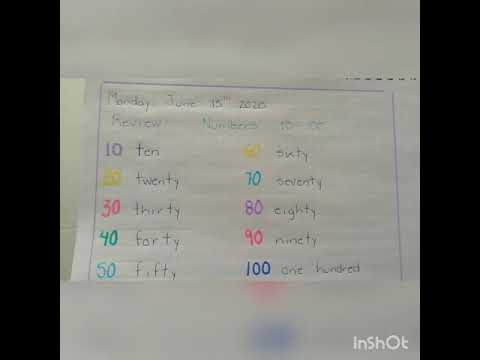 Monday, June 15th 2020
Review Numbers 10-100
10 ten
20 twenty
30 thirty
40 forty
50 fifty
60 sixty
70 seventy
80 eighty
90 ninety
100 one hundred
InShOt